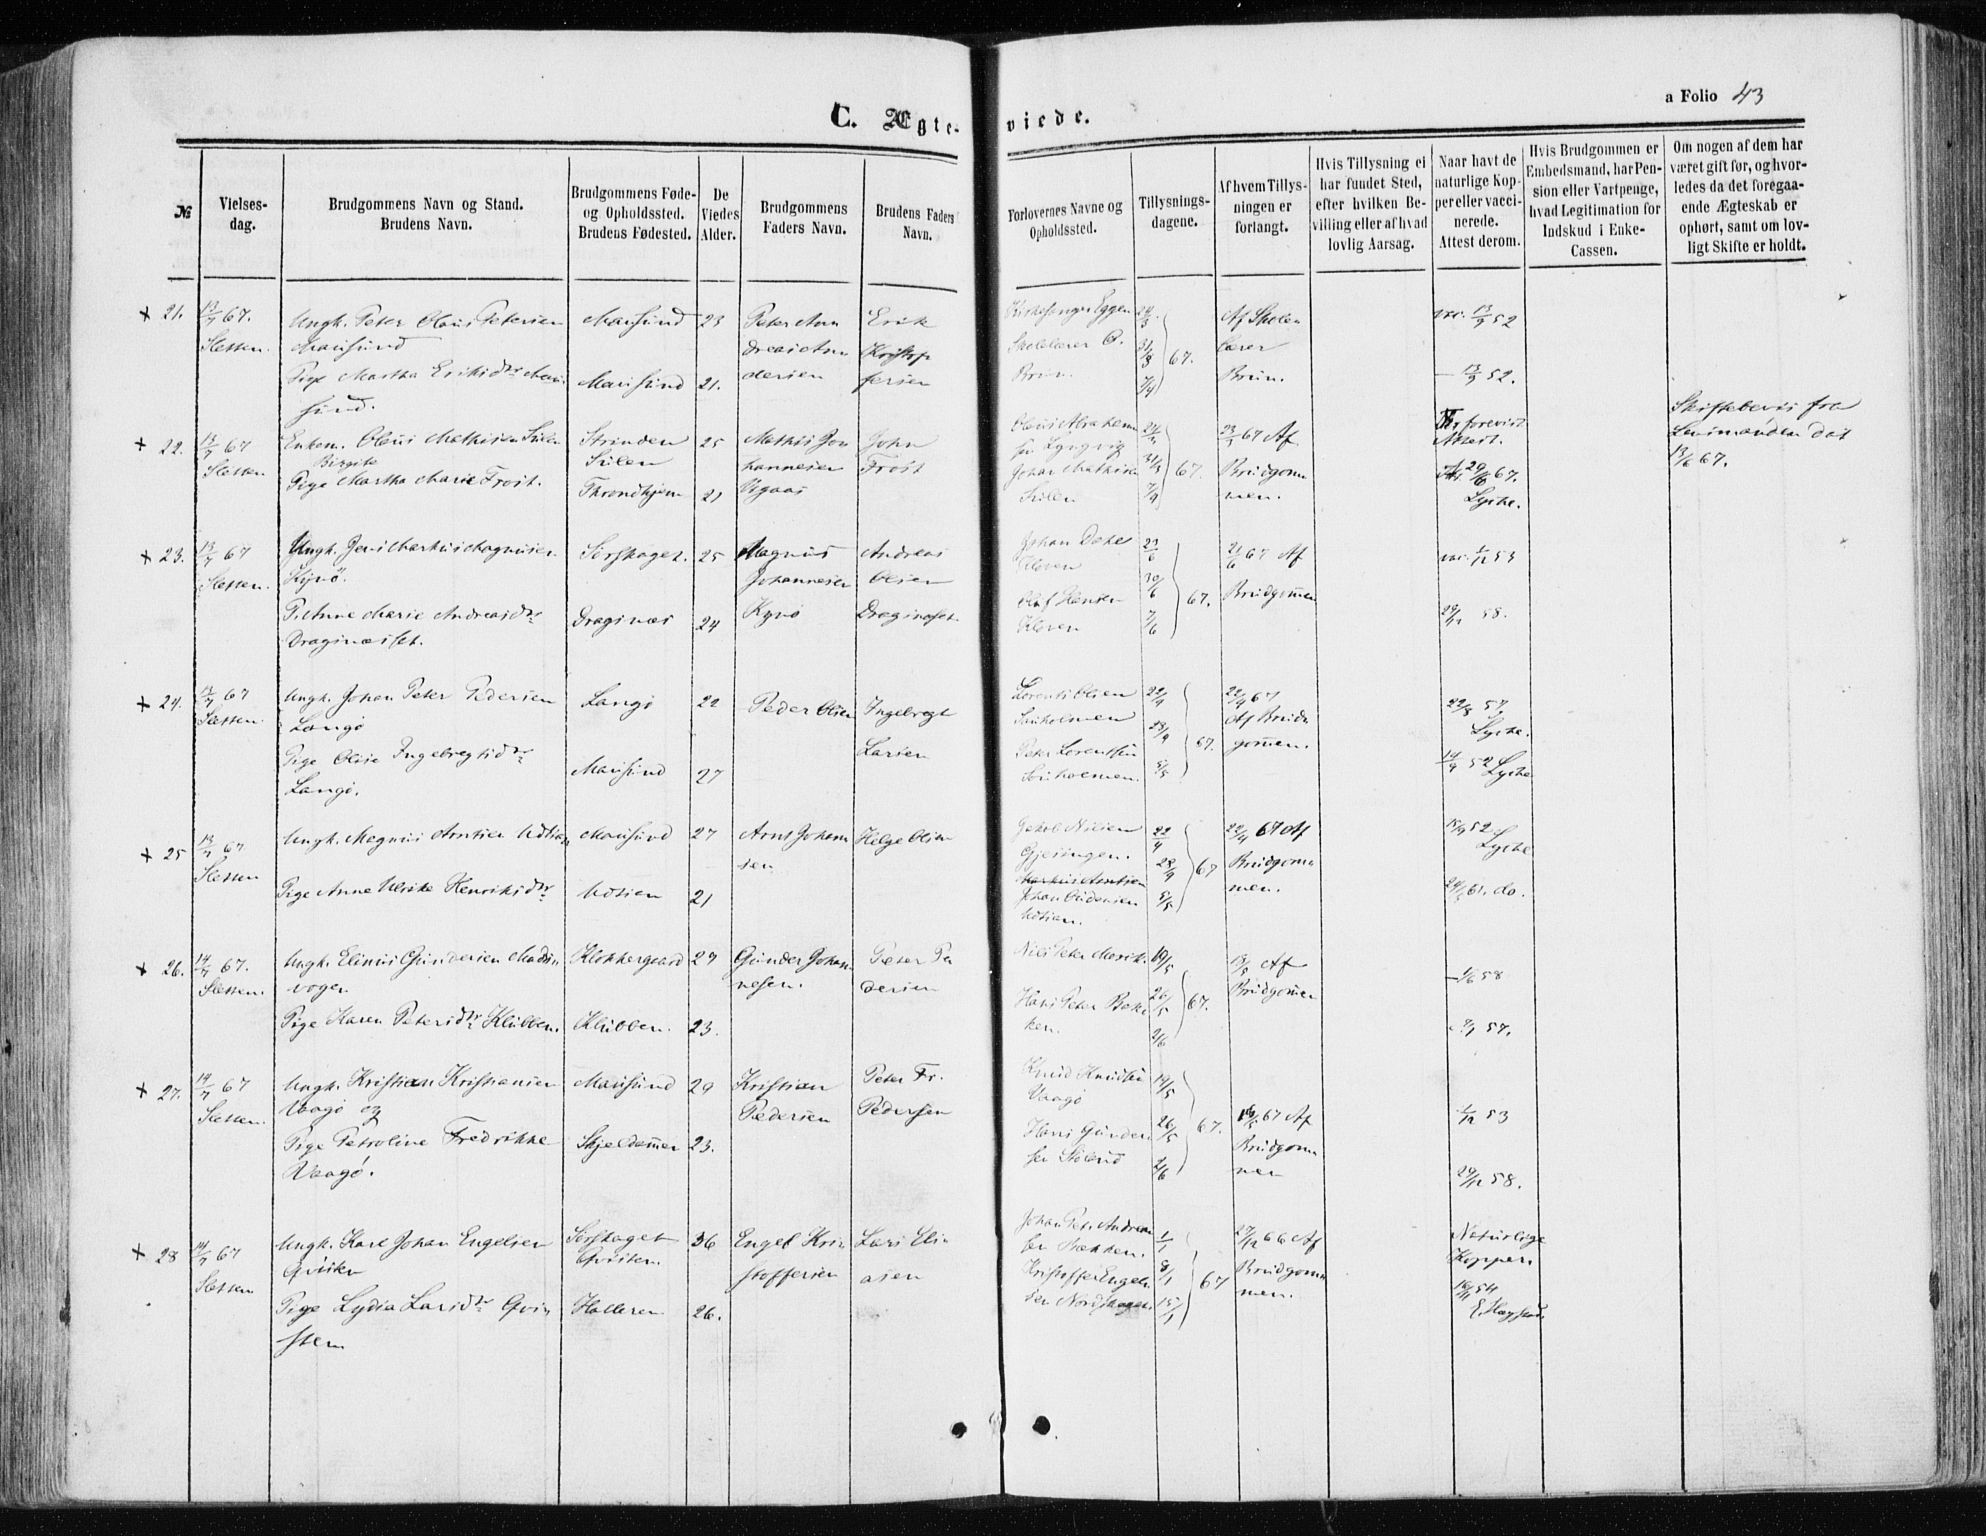 a Folio 43
C. Ægte-viede.
№
Vielses-dag.
Brudgommens Navn og Stand.
Brudens Navn.
Brudgommens Føde-
og Opholdssted.
Brudens Fødested.
De
Viedes
Alder.
Brudgommens
Faders Navn.
Brudens Faders
Navn.
Forlovernes Navne og
Opholdssted.
Tillysnings-
dagene.
Af hvem Tillys-
ningen er
forlangt.
Hvis Tillysning ei
har fundet Sted,
efter hvilken Be-
villing eller af hvad
lovlig Aarsag.
Naar havt de
naturlige Kop-
per eller vacci-
nerede.
Attest derom.
Hvis Brudgommen er
Embedsmand, har Pen-
sion eller Vartpenge,
hvad Legitimation for
Indskud i Enke-
Cassen.
Om nogen af dem har
været gift før, og hvor-
ledes da det foregaa-
ende Ægteskab er
ophørt, samt om lov-
ligt Skifte er holdt.
+ 21. 13/7 67.
Sletten.
Ungk. Peter Olaus Petersen
Mausund
Pige Martha Eriksdtr Mau
sund.
Mausund 23
Mausund 21.
Peter An
dreas An
dersen
Erik
Kristof
fersen
Kirkesanger Eggen
Skolelærer O.
Brun.
24/3
31/3 67.
7/4
Af Skole
lærer
Brun.
vac. 13/9 52
— 13/9 52.
+ 22. 13/7 67
Sletten
Enkem. Olaus Mathisen Sulen
Birgite
Pige Martha Marie Frost.
Strinden 25
Sulen
Throndhjem 21
Mathis Jo
hannesen
John
Frost
Johan Mathisen
Sulen
24/3
31/3 67.
7/4
23/3 67 Af
Brudgom
men.
forevist
Attest.
67.
Lyche.
Skiftebevis fra
Lensmanden dat
13/6 67.
+ 23. 13/7 67
Sletten.
Ungk. Jens Markus Magnusen
Kynø.
P. Anne Marie Andreasdtr
Draginæsset.
Sørskaget. 25
Draginæs 24
Magnus
Johannesen
Kynø
Andreas
Olsen
Draginæset.
Kleven
Olaf Hansen
Kleven
23/6
30/6 67.
7/6
21/6 67 Af
Brudgommen
vac. 1/12 53
58.
+ 24. 13/7 67
Sletten.
Ungk. Johan Peter Pedersen
Langø
Pige Olise Ingebregtsdtr
Langø.
Langø 22
Mausund 27
Peder Olsen
Ingebregt
Larsen
Lorents Olsen
Sauholmen
Peter Lorentsen
Sauholmen.
22/4
28/4 67.
5/5
22/4 67
Af Brud
gommen.
22/8 57
Lyche.
14/9 52 Lyche
+ 25 13/7 67
Sletten
Ungk. Magnus Arntsen Udtian
Pige Anne Ulrike Henriksdtr
Mausund 27
Udtian 21
Arnt Johan
sen.
Helge Olsen
Jakob Nilsen
Gjæsingen.
Markus Arntsen
Udtian.
22/4
28/4 67
5/5
22/4 67 Af
Brudgom
men.
15/9 52
Lyche
61. do.
+ 26. 14/7 67.
Sletten.
Ungk. Elinus Gundersen Madsn
vogen
Pige Karen Petersdtr Klubben.
Klokkergaard 27
Klubben. 23.
Gunder Johan
nesen.
Peter Pe
dersen
Hans Peter Bak
ken.
19/5
26/5 67.
2/6
13/5 Af
Brudgommen
— 1/6 58
57.
+ 27. 14/7 67
Sletten.
Ungk. Kristian Kristiansen
Vaagø og
Pige Petroline Fredrikke
Vaagø.
Mausund 29
Skjeldamen 23.
Kristian
Pedersen
Peter Fr.
Pedersen
Knud Knudsen
Vaagø
Hans Gunder
sen
19/5
26/5 67.
2/6
67 Af
Brudgom
men
1/12 53
29/12 58.
+ 28 14/7 67
Sletten
Ungk. Karl Johan Engelsen
Qvisten
Pige Lydia Larsdtr Qvi
sten
Sørskaget 36
Qvisten.
Halteren 26.
Engel Kri
stoffersen
Lars Eli
asen
Johan Peter Andrea
sen Bækken.
Kristoffer Engel
sen Nordskagen.
1/1
8/1 67
15/1
27/12 66 Af
Brudgom
men.
Naturlige
Kopper.
54